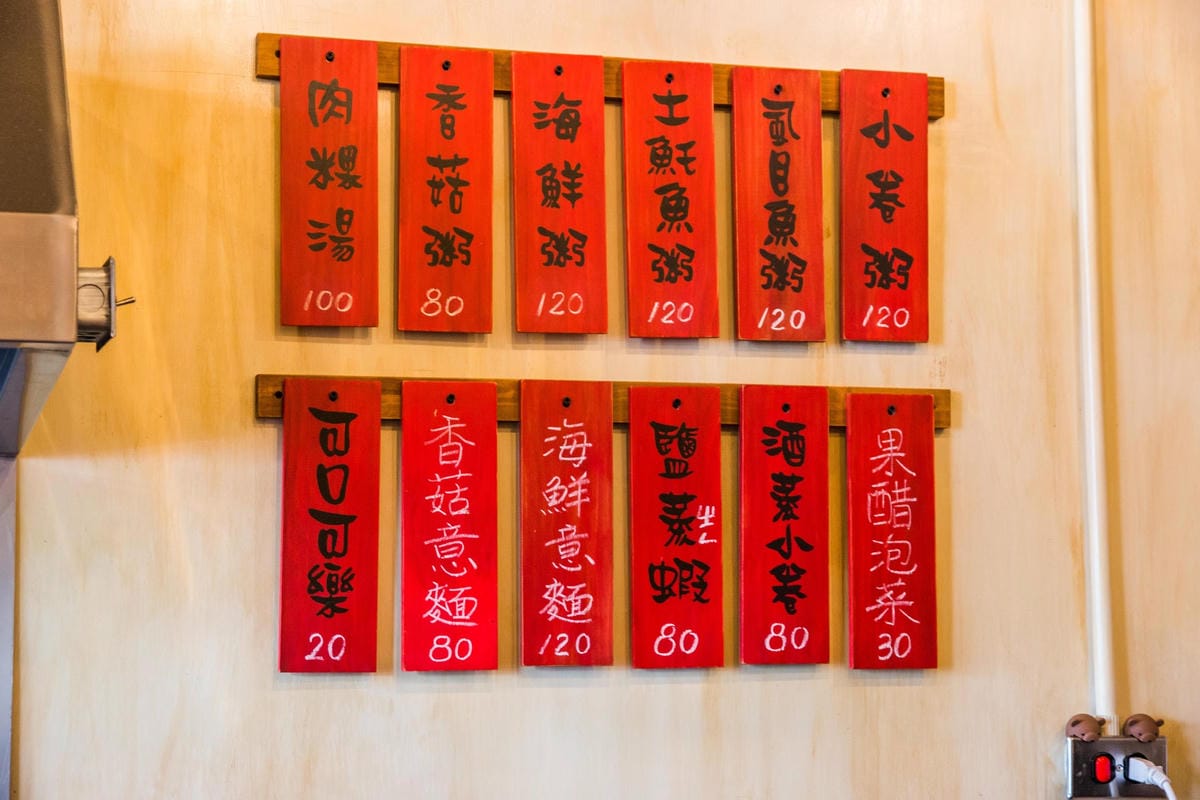 肉粿湯
100
香菇粥
80
海鮮粥
120
土魠魚粥
120
虱目魚粥
120
小卷粥
120
可口可樂
20
香菇意麵
80
海鮮意麵
120
鹽蒸蝦
ㄓㄥ
80
酒蒸小卷
80
果醋泡菜
30